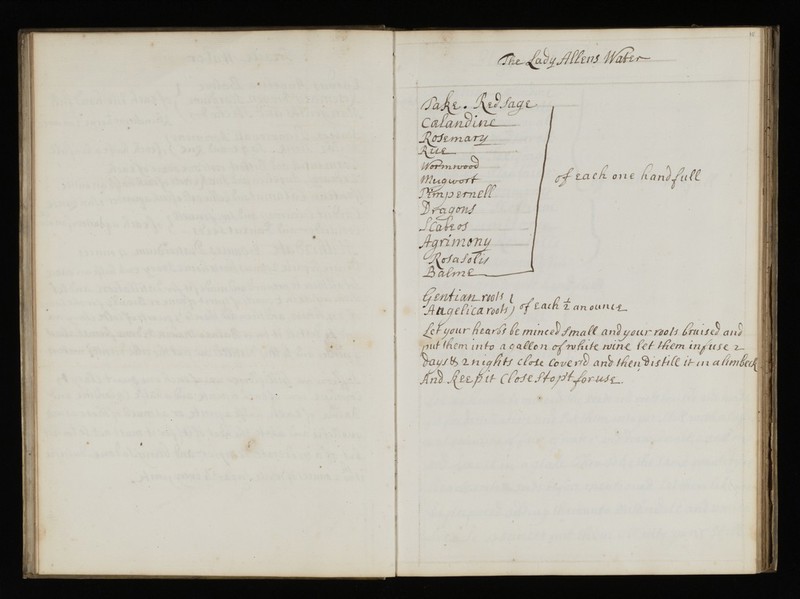 The Lady Allens Water
Take. Red Sage
Calandine
Rosemary
Rue
Wormwood
Mugwort
Pimpernell
Dragons
Scabeos
Agrimony
Rosasolis
Balme
of each one handfull
Gentian roots
Angelica roots) of each ½ an ounce
Let your hearbs be minced small and your roots bruised and
put them into a gallon of white wine let them infuse 2
days & 2 nights close coverd and then distill it in a limbeck
And keep it close stopt for use